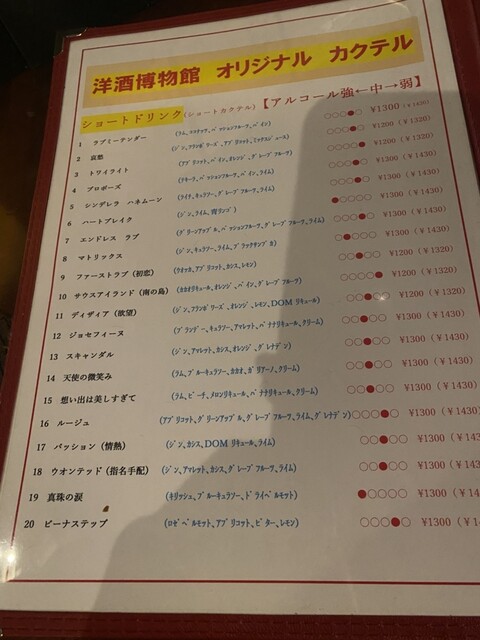 洋酒博物館 オリジナル カクテル
ショートドリンク(ショートカクテル)【アルコール強←中→弱】
1 ラブミーテンダー (ラム、ココナッツ、パッションフルーツ、パイン) ○○○●○ ¥1300(¥1430)
2 哀愁 (ジン、フランボワーズ、アプリコット、ミックスジュース) ○○○●○ ¥1200(¥1320)
3 トワイライト (アプリコット、パイン、オレンジ、グレープフルーツ) ○○○○● ¥1200(¥1320)
4 プロポーズ (テキーラ、パッションフルーツ、パイン、ライム) ○○○●○ ¥1300(¥1430)
5 シンデレラ ハネムーン (ライチ、キュラソー、グレープフルーツ、ライム) ○○○●○ ¥1300(¥1430)
6 ハートブレイク (ジン、ライム、青リンゴ) ●○○○○ ¥1300(¥1430)
7 エンドレス ラブ (グリーンアップル、パッションフルーツ、グレープフルーツ、ライム) ○○○●○ ¥1300(¥1430)
8 マトリックス (ジン、キュラソー、ライム、ブラックサンブカ) ○●○○○ ¥1300(¥1430)
9 ファーストラブ(初恋) (ウオッカ、アプリコット、カシス、レモン) ○○●○○ ¥1200(¥1320)
10 サウスアイランド(南の島) (カカオリキュール、オレンジ、パイン、グレープフルーツ) ○○○○● ¥1200(¥1320)
11 ディザイア(欲望) (ジン、フランボワーズ、オレンジ、レモン、DOMリキュール) ○○●○○ ¥1200(¥1320)
12 ジョセフィーヌ (ブランデー、キュラソー、アマレット、バナナリキュール、クリーム) ○○●○○ ¥1300(¥1430)
13 スキャンダル (ジン、アマレット、カシス、オレンジ、グレナデン) ○○●○○ ¥1300(¥1430)
14 天使の微笑み (ラム、ブルーキュラソー、カカオ、ガリアーノ、クリーム) ○○●○○ ¥1300(¥1430)
15 想い出は美しすぎて (ラム、ピーチ、メロンリキュール、バナナリキュール、クリーム) ○○●○○ ¥1300(¥1430)
16 ルージュ (アプリコット、グリーンアップル、グレープフルーツ、ライム、グレナデン) ○○○●○ ¥1300(¥1430)
17 パッション(情熱) (ジン、カシス、DOMリキュール、ライム) ○○●○○ ¥1300(¥143
18 ウオンテッド(指名手配) (ジン、アマレット、カシス、グレープフルーツ、ライム) ○○●○○ ¥1300(¥143
19 真珠の涙 (キリッシュ、ブルーキュラソー、ドライベルモット) ●○○○○ ¥1300(¥14
20 ビーナステップ (ロゼベルモット、アプリコット、ビター、レモン) ○○○●○ ¥1300(¥14